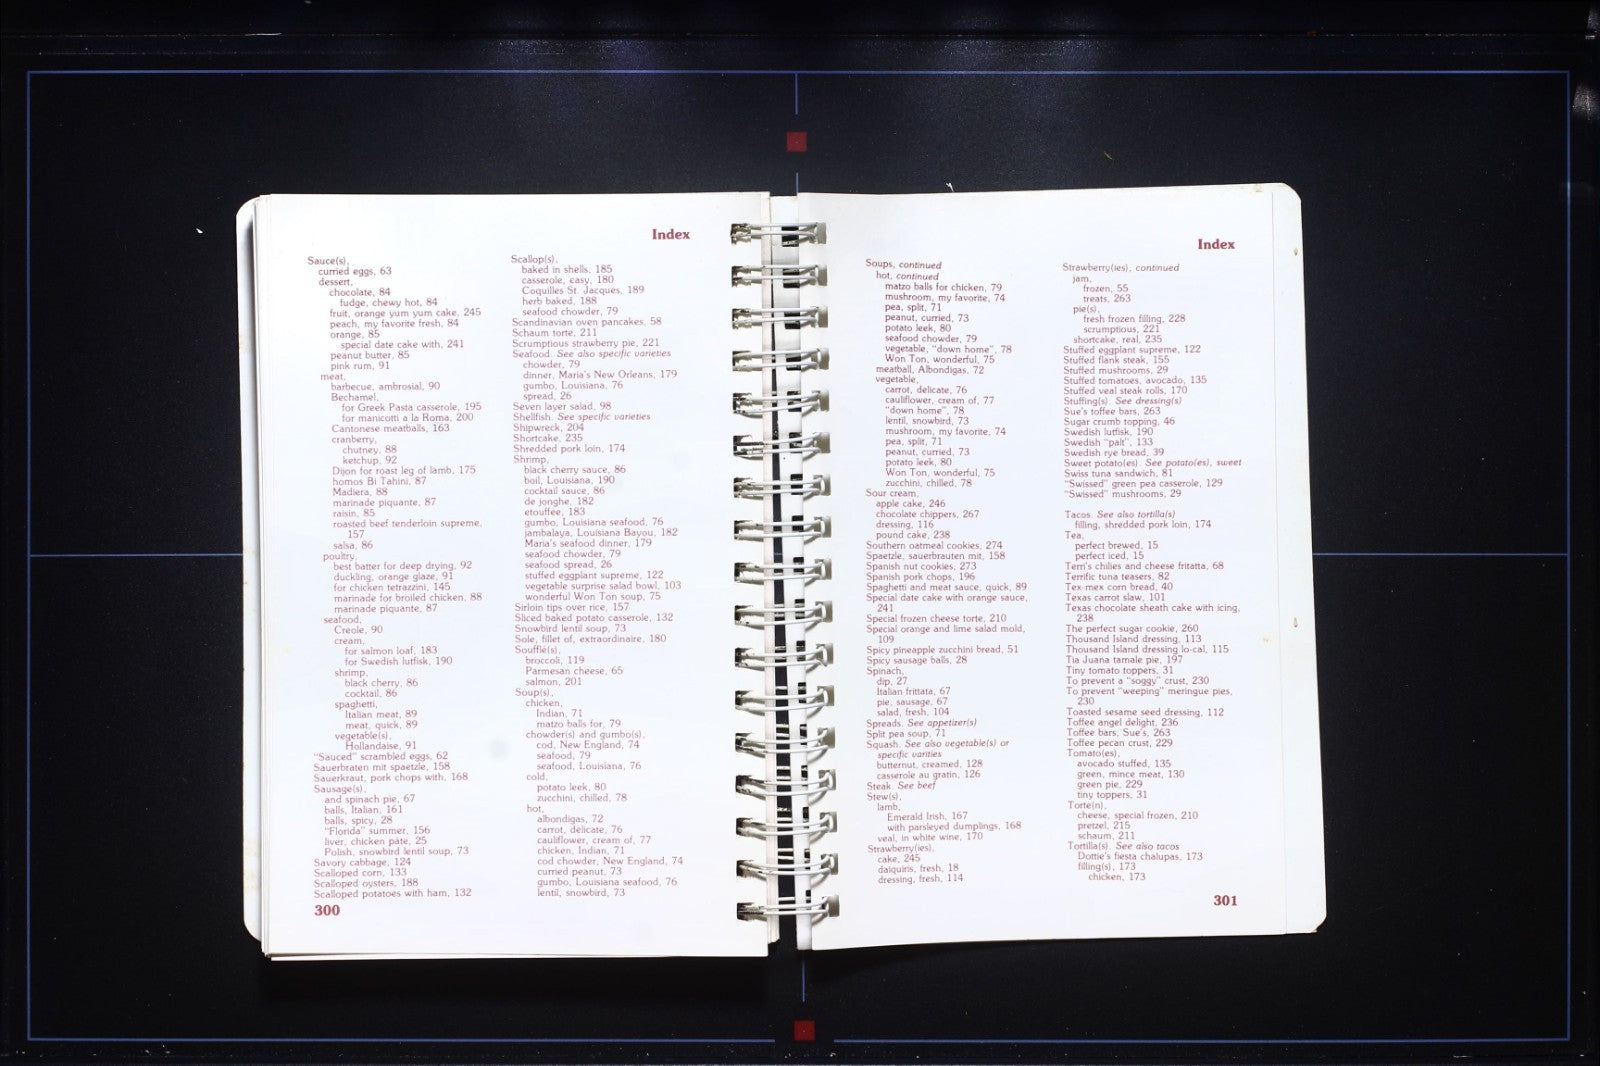 Index
Sauce(s),
curried eggs, 63
dessert,
chocolate, 84
fudge, chewy hot, 84
fruit, orange yum yum cake, 245
peach, my favorite fresh, 84
orange, 85
special date cake with, 241
peanut butter, 85
pink rum, 91
meat,
barbecue, ambrosial, 90
Bechamel,
for Greek Pasta casserole, 195
for manicotti a la Roma, 200
Cantonese meatballs, 163
cranberry,
chutney, 88
ketchup, 92
Dijon for roast leg of lamb, 175
homos Bi Tahini, 87
Madiera, 88
marinade piquante, 87
raisin, 85
roasted beef tenderloin supreme,
157
salsa, 86
poultry,
best batter for deep drying, 92
duckling, orange glaze, 91
for chicken tetrazzini, 145
marinade for broiled chicken, 88
marinade piquante, 87
seafood,
Creole, 90
cream,
for salmon loaf, 183
for Swedish lutfisk, 190
shrimp,
black cherry, 86
cocktail, 86
spaghetti,
Italian meat, 89
meat, quick, 89
vegetable(s),
Hollandaise, 91
"Sauced" scrambled eggs, 62
Sauerbraten mit spaetzle, 158
Sauerkraut, pork chops with, 168
Sausage(s),
and spinach pie, 67
balls, Italian, 161
balls, spicy, 28
"Florida" summer, 156
liver, chicken pate, 25
Polish, snowbird lentil soup, 73
Savory cabbage, 124
Scalloped corn, 133
Scalloped oysters, 188
Scalloped potatoes with ham, 132
300
Scallop(s),
baked in shells, 185
casserole, easy, 180
Coquilles St. Jacques, 189
herb baked, 188
seafood chowder, 79
Scandinavian oven pancakes, 58
Schaum torte, 211
Scrumptious strawberry pie, 221
Seafood. See also specific varieties
chowder, 79
dinner, Maria's New Orleans, 179
gumbo, Louisiana, 76
spread, 26
Seven layer salad, 98
Shellfish. See specific varieties
Shipwreck, 204
Shortcake, 235
Shredded pork loin, 174
Shrimp,
black cherry sauce, 86
boil, Louisiana, 190
cocktail sauce, 86
de jonghe, 182
etouffee, 183
gumbo, Louisiana seafood, 76
jambalaya, Louisiana Bayou, 182
Maria's seafood dinner, 179
seafood chowder, 79
seafood spread, 26
stuffed eggplant supreme, 122
vegetable surprise salad bowl, 103
wonderful Won Ton soup, 75
Sirloin tips over rice, 157
Sliced baked potato casserole, 132
Snowbird lentil soup, 73
Sole, fillet of, extraordinaire, 180
Soufflé(s),
broccoli, 119
Parmesan cheese, 65
salmon, 201
Soup(s),
chicken,
Indian, 71
matzo balls for, 79
chowder(s) and gumbo(s),
cod, New England, 74
seafood, 79
seafood, Louisiana, 76
cold,
potato leek, 80
zucchini, chilled, 78
hot,
albondigas, 72
carrot, delicate, 76
cauliflower, cream of, 77
chicken, Indian, 71
cod chowder, New England, 74
curried peanut, 73
gumbo, Louisiana seafood, 76
lentil, snowbird, 73
Index
Soups, continued
hot, continued
matzo balls for chicken, 79
mushroom, my favorite, 74
pea, split, 71
peanut, curried, 73
potato leek, 80
seafood chowder, 79
vegetable, "down home", 78
Won Ton, wonderful, 75
meatball, Albondigas, 72
vegetable,
carrot, delicate, 76
cauliflower, cream of, 77
"down home", 78
lentil, snowbird, 73
mushroom, my favorite, 74
pea, split, 71
peanut, curried, 73
potato leek, 80
Won Ton, wonderful, 75
zucchini, chilled, 78
Sour cream,
apple cake, 246
chocolate chippers, 267
dressing, 116
pound cake, 238
Southern oatmeal cookies, 274
Spaetzle, sauerbrauten mit, 158
Spanish nut cookies, 273
Spanish pork chops, 196
Spaghetti and meat sauce, quick, 89
Special date cake with orange sauce,
241
Special frozen cheese torte, 210
Special orange and lime salad mold,
109
Spicy pineapple zucchini bread, 51
Spicy sausage balls, 28
Spinach,
dip, 27
Italian frittata, 67
pie, sausage, 67
salad, fresh, 104
Spreads. See appetizer(s)
Split pea soup, 71
Squash. See also vegetable(s) or
specific varities
butternut, creamed, 128
casserole au gratin, 126
Steak. See beef
Stew(s),
lamb,
Emerald Irish, 167
with parsleyed dumplings, 168
veal, in white wine, 170
Strawberry(ies),
cake, 245
daiquiris, fresh, 18
dressing, fresh, 114
Strawberry(ies), continued
jam,
frozen, 55
treats, 263
pie(s),
fresh frozen filling, 228
scrumptious, 221
shortcake, real, 235
Stuffed eggplant supreme, 122
Stuffed flank steak, 155
Stuffed mushrooms, 29
Stuffed tomatoes, avocado, 135
Stuffed veal steak rolls, 170
Stuffing(s). See dressing(s)
Sue's toffee bars, 263
Sugar crumb topping, 46
Swedish lutfisk, 190
Swedish "palt", 133
Swedish rye bread, 39
Sweet potato(es). See potato(es), sweet
Swiss tuna sandwich, 81
"Swissed" green pea casserole, 129
"Swissed" mushrooms, 29
Tacos. See also tortilla(s)
filling, shredded pork loin, 174
Tea,
perfect brewed, 15
perfect iced, 15
Terri's chilies and cheese fritatta, 68
Terrific tuna teasers, 82
Tex-mex corn bread, 40
Texas carrot slaw, 101
Texas chocolate sheath cake with icing,
238
The perfect sugar cookie, 260
Thousand Island dressing, 113
Thousand Island dressing lo-cal, 115
Tia Juana tamale pie, 197
Tiny tomato toppers, 31
To prevent a "soggy" crust, 230
To prevent "weeping" meringue pies,
230
Toasted sesame seed dressing, 112
Toffee angel delight, 236
Toffee bars, Sue's, 263
Toffee pecan crust, 229
Tomato(es),
avocado stuffed, 135
green, mince meat, 130
green pie, 229
tiny toppers, 31
Torte(n),
cheese, special frozen, 210
pretzel, 215
schaum, 211
Tortilla(s). See also tacos
Dottie's fiesta chalupas, 173
filling(s), 173
chicken, 173
301